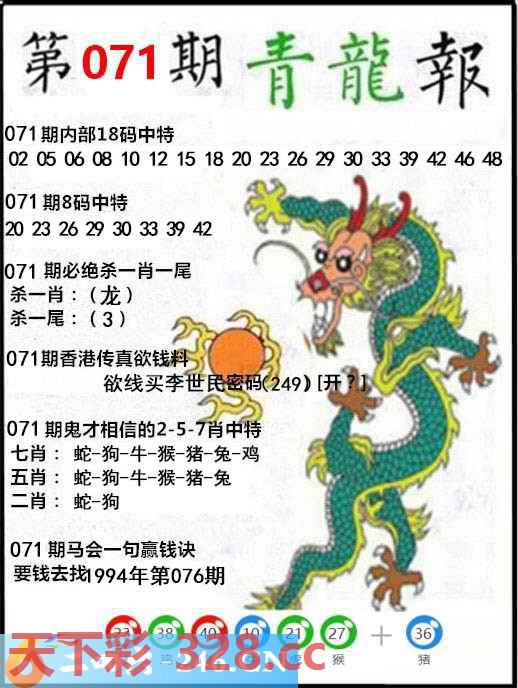 第071期青龍報
071期内部18码中特
02 05 06 08 10 12 15 18 20 23 26 29 30 33 39 42 46 48
071期8码中特
20 23 26 29 30 33 39 42
071期必绝杀一肖一尾
杀一肖:(龙)
杀一尾:(3)
071期香港传真欲钱料
欲线买李世民密码(249)[开?]
071期鬼才相信的2-5-7肖中特
七肖: 蛇-狗-牛-猴-猪-兔-鸡
五肖: 蛇-狗-牛-猴-猪-兔
二肖: 蛇-狗
071期马会一句赢钱诀
要钱去找1994年第076期
23 38 40 10 21 27 + 36
鸡 猴 猪
天下彩 328.cc